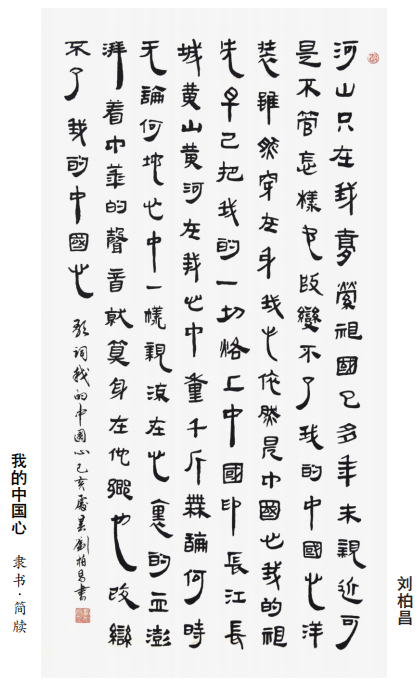 河山只在我夢縈祖國已多年未親近可
是不管怎樣也改變不了我的中國心洋
裝雖然穿在身我心依然是中國心我的祖
先早已把我的一切烙上中國印長江長
城黄山黄河在我心中重千斤無論何時
无論何地心中一樣親流在心裏的血澎
湃着中華的聲音就算身在他鄉也改變
不了我的中國心
歌詞我的中國心己亥處暑劉柏昌書
刘柏昌
我的中国心
隶书·简牍